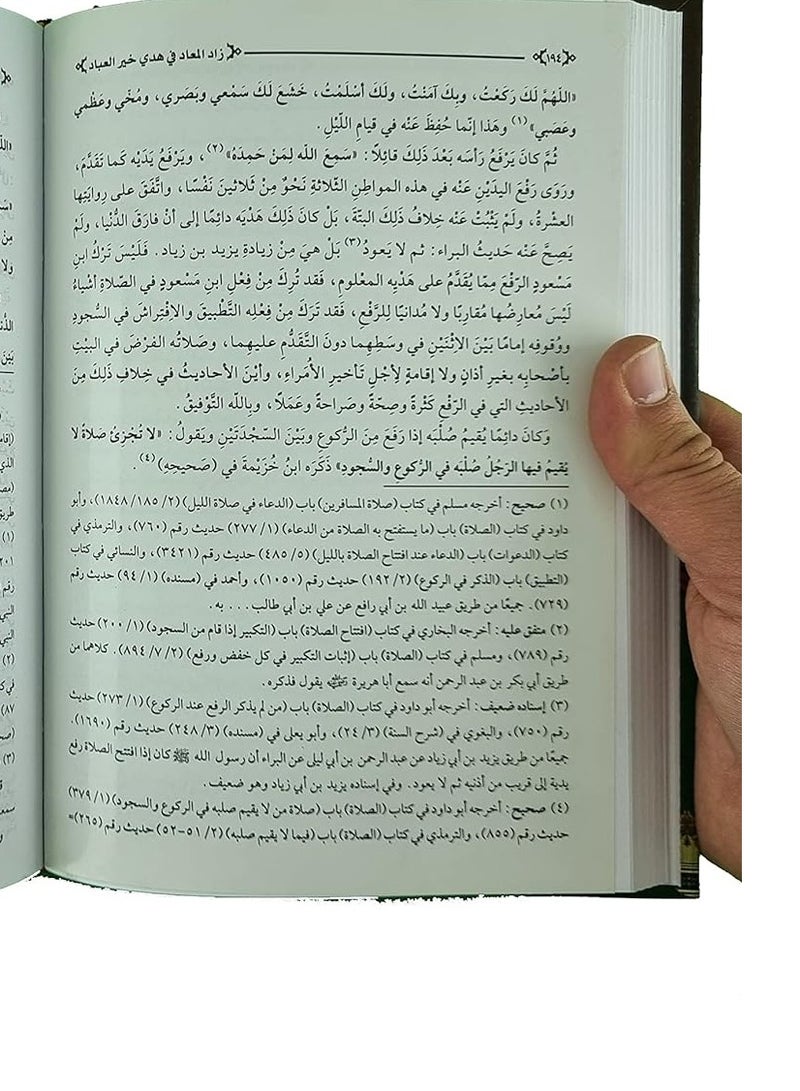 ١٩٤ زاد المعاد في هدي خير العباد
«اللَّهُمَّ لَكَ رَكَعْتُ، وبِكَ آمَنْتُ، ولَكَ أَسْلَمْتُ، خَشَعَ لَكَ سَمْعي وبَصَري، ومُخّي وعَظْمي
وعَصَبي»(١) وهَذا إنّما حُفِظَ عَنْه في قيامِ اللّيْلِ.
ثُمَّ كانَ يَرْفَعُ رأسَه بَعْدَ ذَلِكَ قائِلًا: «سَمِعَ الله لِمَنْ حَمِدَهُ»(٢)، ويَرْفَعُ يَدَيْه كَما تَقَدَّمَ،
ورَوَى رَفْعَ اليَدَيْنِ عَنْه في هذه المواطِنِ الثّلاثةِ نَحْوٌ مِنْ ثَلاثينَ نَفْسًا، واتَّفَقَ على رِوايَتِها
العشْرةُ، ولَمْ يَثْبُتْ عَنْه خِلافُ ذَلِكَ البتّةَ، بَلْ كانَ ذَلِكَ هَدْيَه دائِمًا إلى أنْ فارَقَ الدُّنْيا، ولَمْ
يَصِحَّ عَنْه حَديثُ البراء: ثـم لا يَعودُ(٣) بَلْ هيَ مِنْ زيادةِ يزيد بن زياد. فَلَيْسَ تَرْكُ ابنِ
مَسْعودٍ الرّفْعَ مِمّا يُقَدَّمُ على هَدْيِه المعْلومِ، فَقد تُرِكَ مِنْ فِعْلِ ابنِ مَسْعودٍ في الصّلاةِ أشْياءُ
لَيْسَ مُعارِضُها مُقارِبًا ولا مُدانيًا لِلرَّفْعِ، فَقد تَرَكَ مِنْ فِعْلِه التَّطْبيقَ والافْتِراشَ في السُّجودِ
ووُقوفِه إمامًا بَيْنَ الاِثْنَيْنِ في وَسَطِهِما دونَ التَّقَدُّمِ عليهِما، وصَلاتُه الفرْضَ في البيْتِ
بأصْحابِه بغيرِ أذانٍ ولا إقامةٍ لِأجْلِ تَأخيرِ الأُمَراءِ، وأيْنَ الأحاديثُ في خِلافِ ذَلِكَ مِنَ
الأحاديثِ التي في الرّفْعِ كَثْرةً وصِحّةً وصَراحةً وعَمَلًا، وبِالله التّوْفيقُ.
وَكانَ دائِمًا يُقيمُ صُلْبَه إذا رَفَعَ مِنَ الرُّكوعِ وبَيْنَ السّجْدَتَيْنِ ويَقولُ: «لا تُجْزِئُ صَلاةٌ لا
يُقيمُ فيها الرّجُلُ صُلْبَه في الرُّكوعِ والسُّجودِ» ذَكَرَه ابنُ خُزَيْمةَ في (صَحيحِهِ)(٤).
(١) صحيح: أخرجه مسلم في كتاب (صلاة المسافرين) باب (الدعاء في صلاة الليل) (٢/ ١٨٥/ ١٨٤٨)، وأبو
داود في كتاب (الصلاة) باب (ما يستفتح به الصلاة من الدعاء) (١/ ٢٧٧) حديث رقم (٧٦٠)، والترمذي في
كتاب (الدعوات) باب (الدعاء عند افتتاح الصلاة بالليل) (٥/ ٤٨٥) حديث رقم (٣٤٢١)، والنسائي في كتاب
(التطبيق) باب (الذكر في الركوع) (٢/ ١٩٢) حديث رقم (١٠٥٠)، وأحمد في (مسنده) (١/ ٩٤) حديث رقم
(٧٢٩). جميعًا من طريق عبيد الله بن أبي رافع عن علي بن أبي طالب... به.
(٢) متفق عليه: أخرجه البخاري في كتاب (افتتاح الصلاة) باب (التكبير إذا قام من السجود) (١/ ٢٠٠) حديث
رقم (٧٨٩)، ومسلم في كتاب (الصلاة) باب (إثبات التكبير في كل خفض ورفع) (٢/ ٧/ ٨٩٤). كلاهما من
طريق أبي بكر بن عبد الرحمن أنه سمع أبا هريرة رضي الله عنه يقول فذكره.
(٣) إسناده ضعيف: أخرجه أبو داود في كتاب (الصلاة) باب (من لم يذكر الرفع عند الركوع) (١/ ٢٧٣) حديث
رقم (٧٥٠)، والبغوي في (شرح السنة) (٣/ ٢٤)، وأبو يعلى في (مسنده) (٣/ ٢٤٨) حديث رقم (١٦٩٠).
جميعًا من طريق يزيد بن أبي زياد عن عبد الرحمن بن أبي ليلى عن البراء أن رسول الله ﷺ كان إذا افتتح الصلاة رفع
يدية إلى قريب من أذنيه ثم لا يعود. وفي إسناده يزيد بن أبي زياد وهو ضعيف.
(٤) صحيح: أخرجه أبو داود في كتاب (الصلاة) باب (صلاة من لا يقيم صلبه في الركوع والسجود) (١/ ٣٧٩)
حديث رقم (٨٥٥)، والترمذي في كتاب (الصلاة) باب (فيما لا يقيم صلبه) (٢/ ٥١-٥٢) حديث رقم (٢٦٥)=